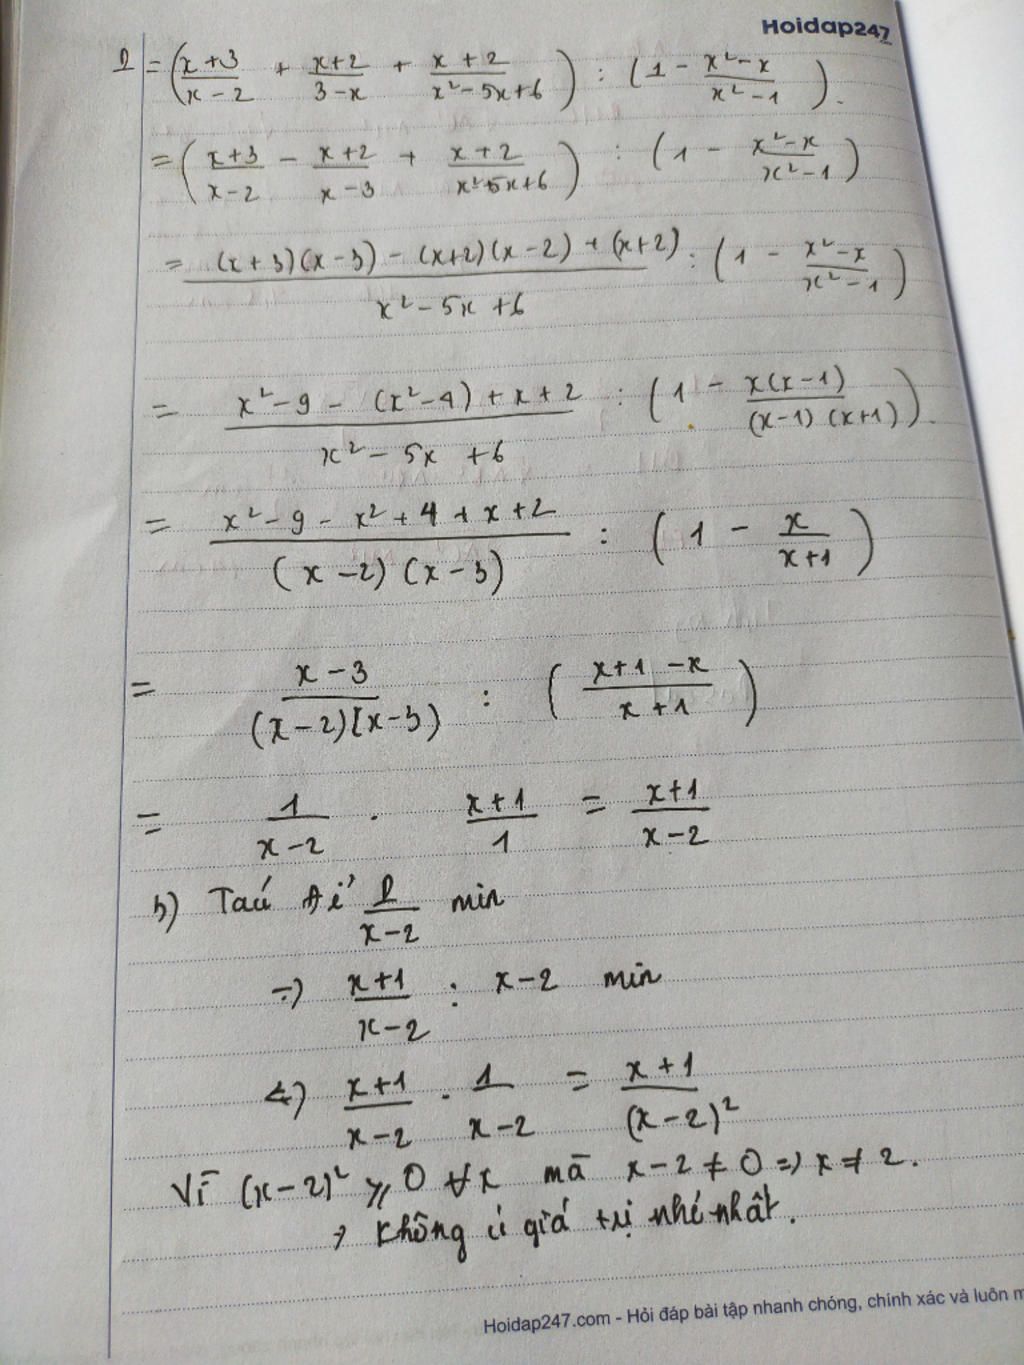 Hoidap247
P = ( (x+3)/(x-2) + (x+2)/(3-x) + (x+2)/(x²-5x+6) ) : (1 - (x²-x)/(x²-1)).
= ( (x+3)/(x-2) - (x+2)/(x-3) + (x+2)/(x²-5x+6) ) : (1 - (x²-x)/(x²-1))
= ((x+3)(x-3) - (x+2)(x-2) + (x+2))/(x²-5x+6) : (1 - (x²-x)/(x²-1))
= (x²-9 - (x²-4) + x+2)/(x²-5x+6) : (1 - x(x-1)/((x-1)(x+1))).
= (x²-9 - x²+4+x+2)/((x-2)(x-3)) : (1 - x/(x+1))
= (x-3)/((x-2)(x-3)) : ((x+1-x)/(x+1))
= 1/(x-2) . (x+1)/1 = (x+1)/(x-2)
b) Tacó để P/(x-2) min
=> (x+1)/(x-2) : x-2 min
<=> (x+1)/(x-2) . 1/(x-2) = (x+1)/(x-2)²
Vì (x-2)² ≥ 0 ∀x mà x-2 ≠ 0 => x ≠ 2.
=> Không có giá trị nhỏ nhất.
Hoidap247.com - Hỏi đáp bài tập nhanh chóng, chính xác và luôn m